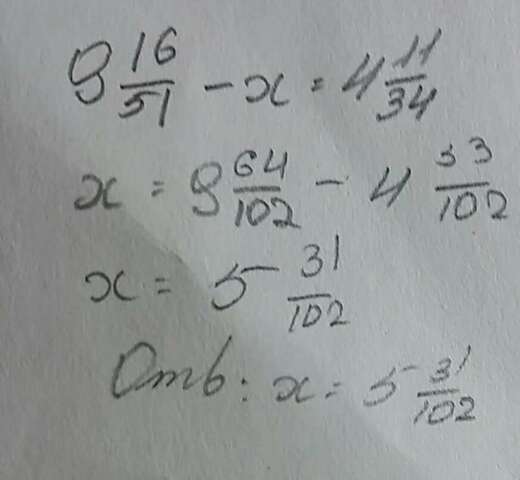 9 16/51 - x = 4 11/34
x = 9 64/102 - 4 33/102
x = 5 31/102
Отв: x = 5 31/102